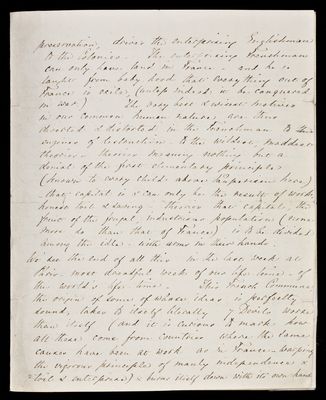 preservation, drives the enterprising Englishman
to the Colonies. The enterprising Frenchman
can only have land in France - and he is
taught from baby hood that everything out of
France is exile, (unless indeed it be conquered
in war) The very best & wisest motives
in our common human nature, are thus
diverted & distorted, in the Frenchman to the
engines of destruction. To the wildest, maddest
theories - theories meaning nothing but a
denial of the first elementary principle
(known to every child above Kaposia here)
- that capital is & can only be the result of work
honest toil & saving - theories that capital, the
fruit of the frugal, industrious population (none
more so than that of France) is to be divided
among the idle - with arms in their hands.
We see the end of all this in the last week at
Paris - most dreadful week of our life time - of
the world's life time. This French Commune
the origin of some of whose ideas is perfectly
sound, takes to itself literally 7 Devils worse
than itself (and it is curious to mark how
all these come from countries where the same
causes have been at work as in France - warping
the vigorous principle of manly independence &
toil & enterprise) & burns itself down with its own hand